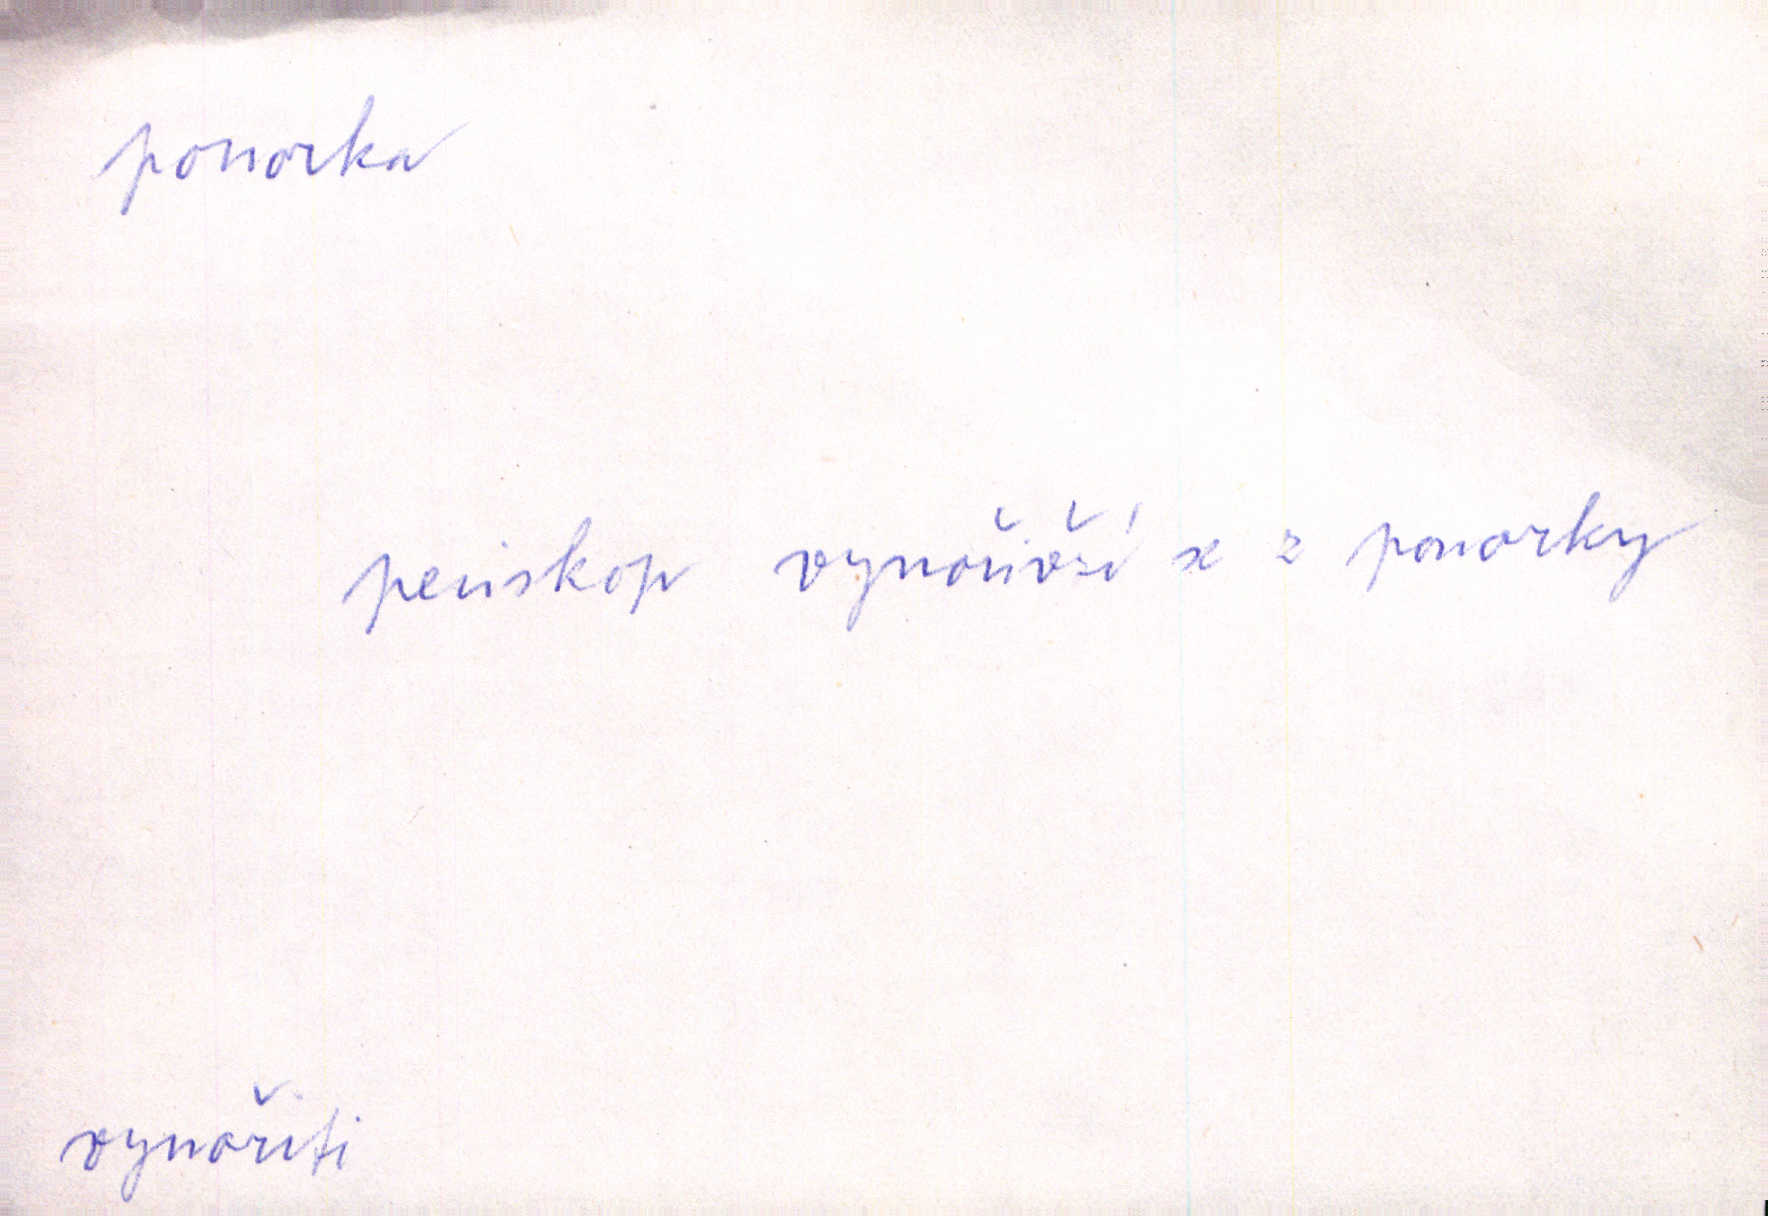 ponorka
periskop vynořivší se z ponorky
vynořiti